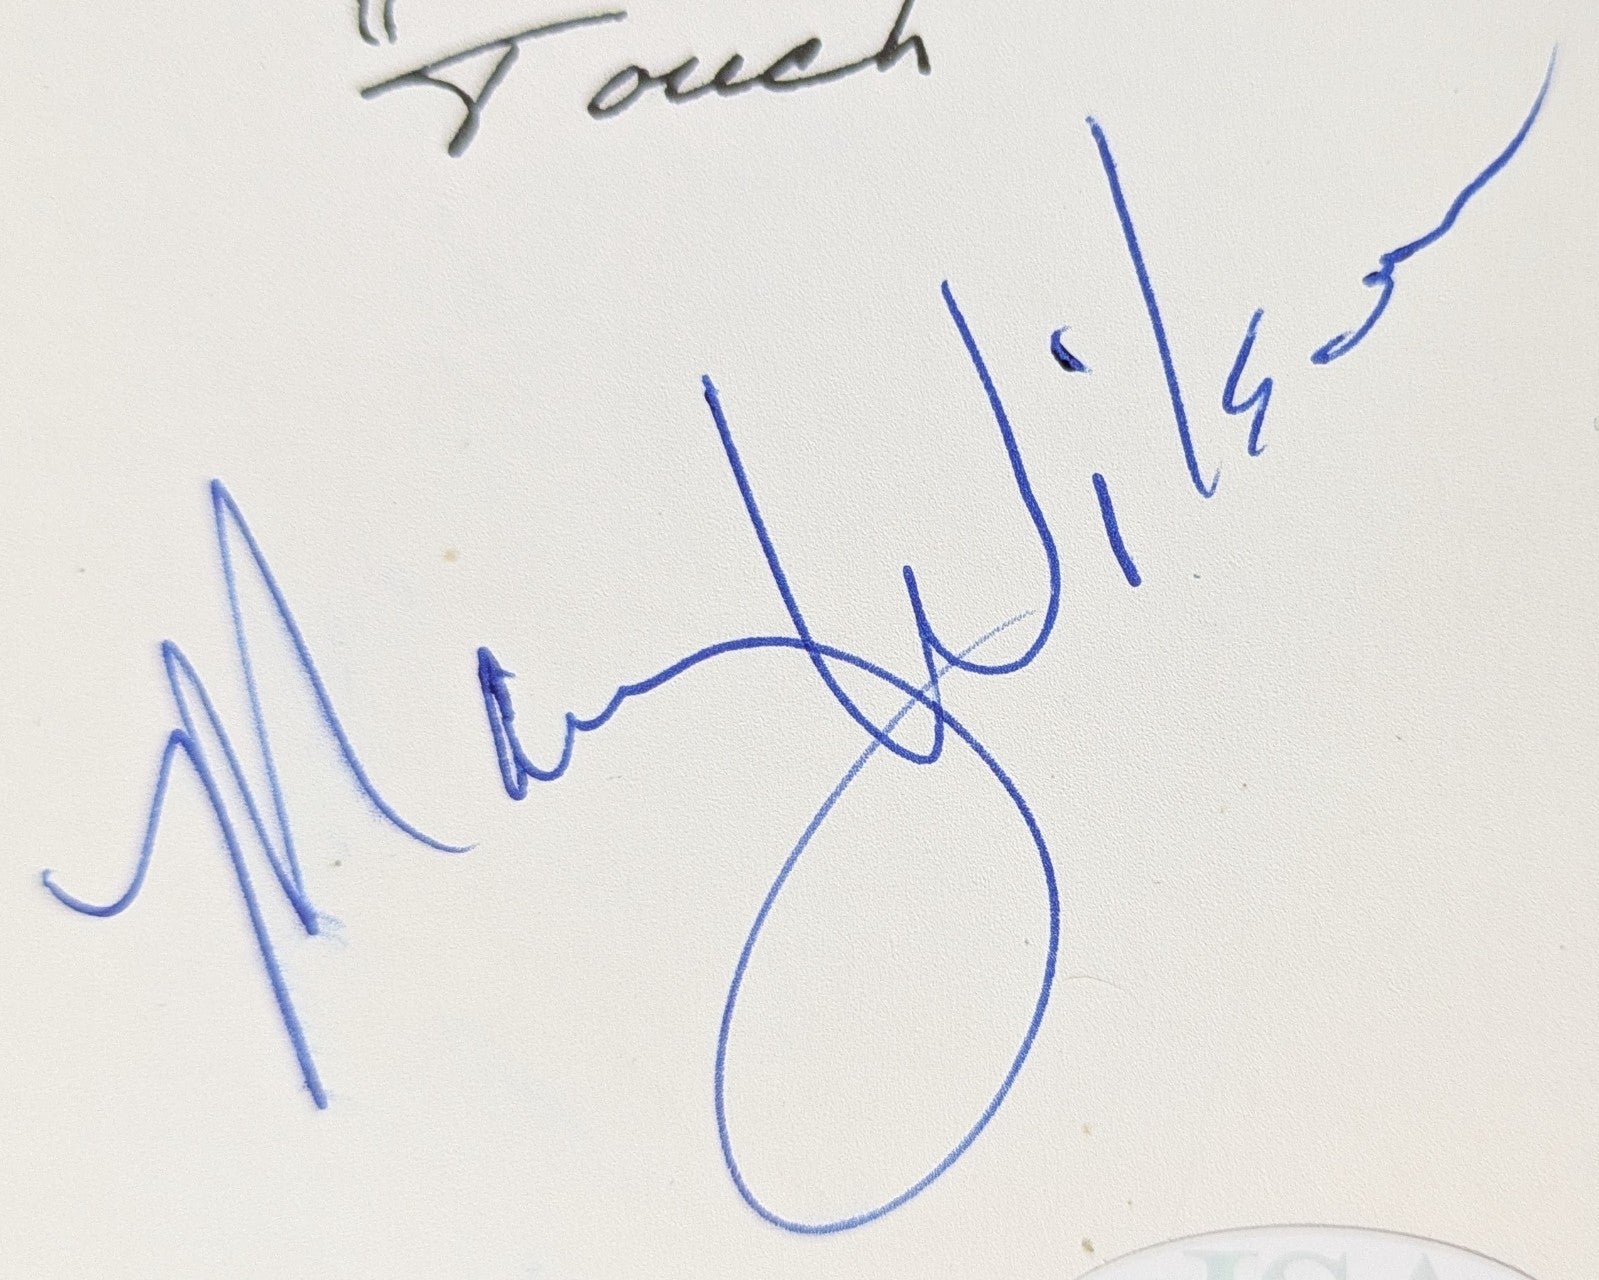 "Touch
Mary Wilson
JSA